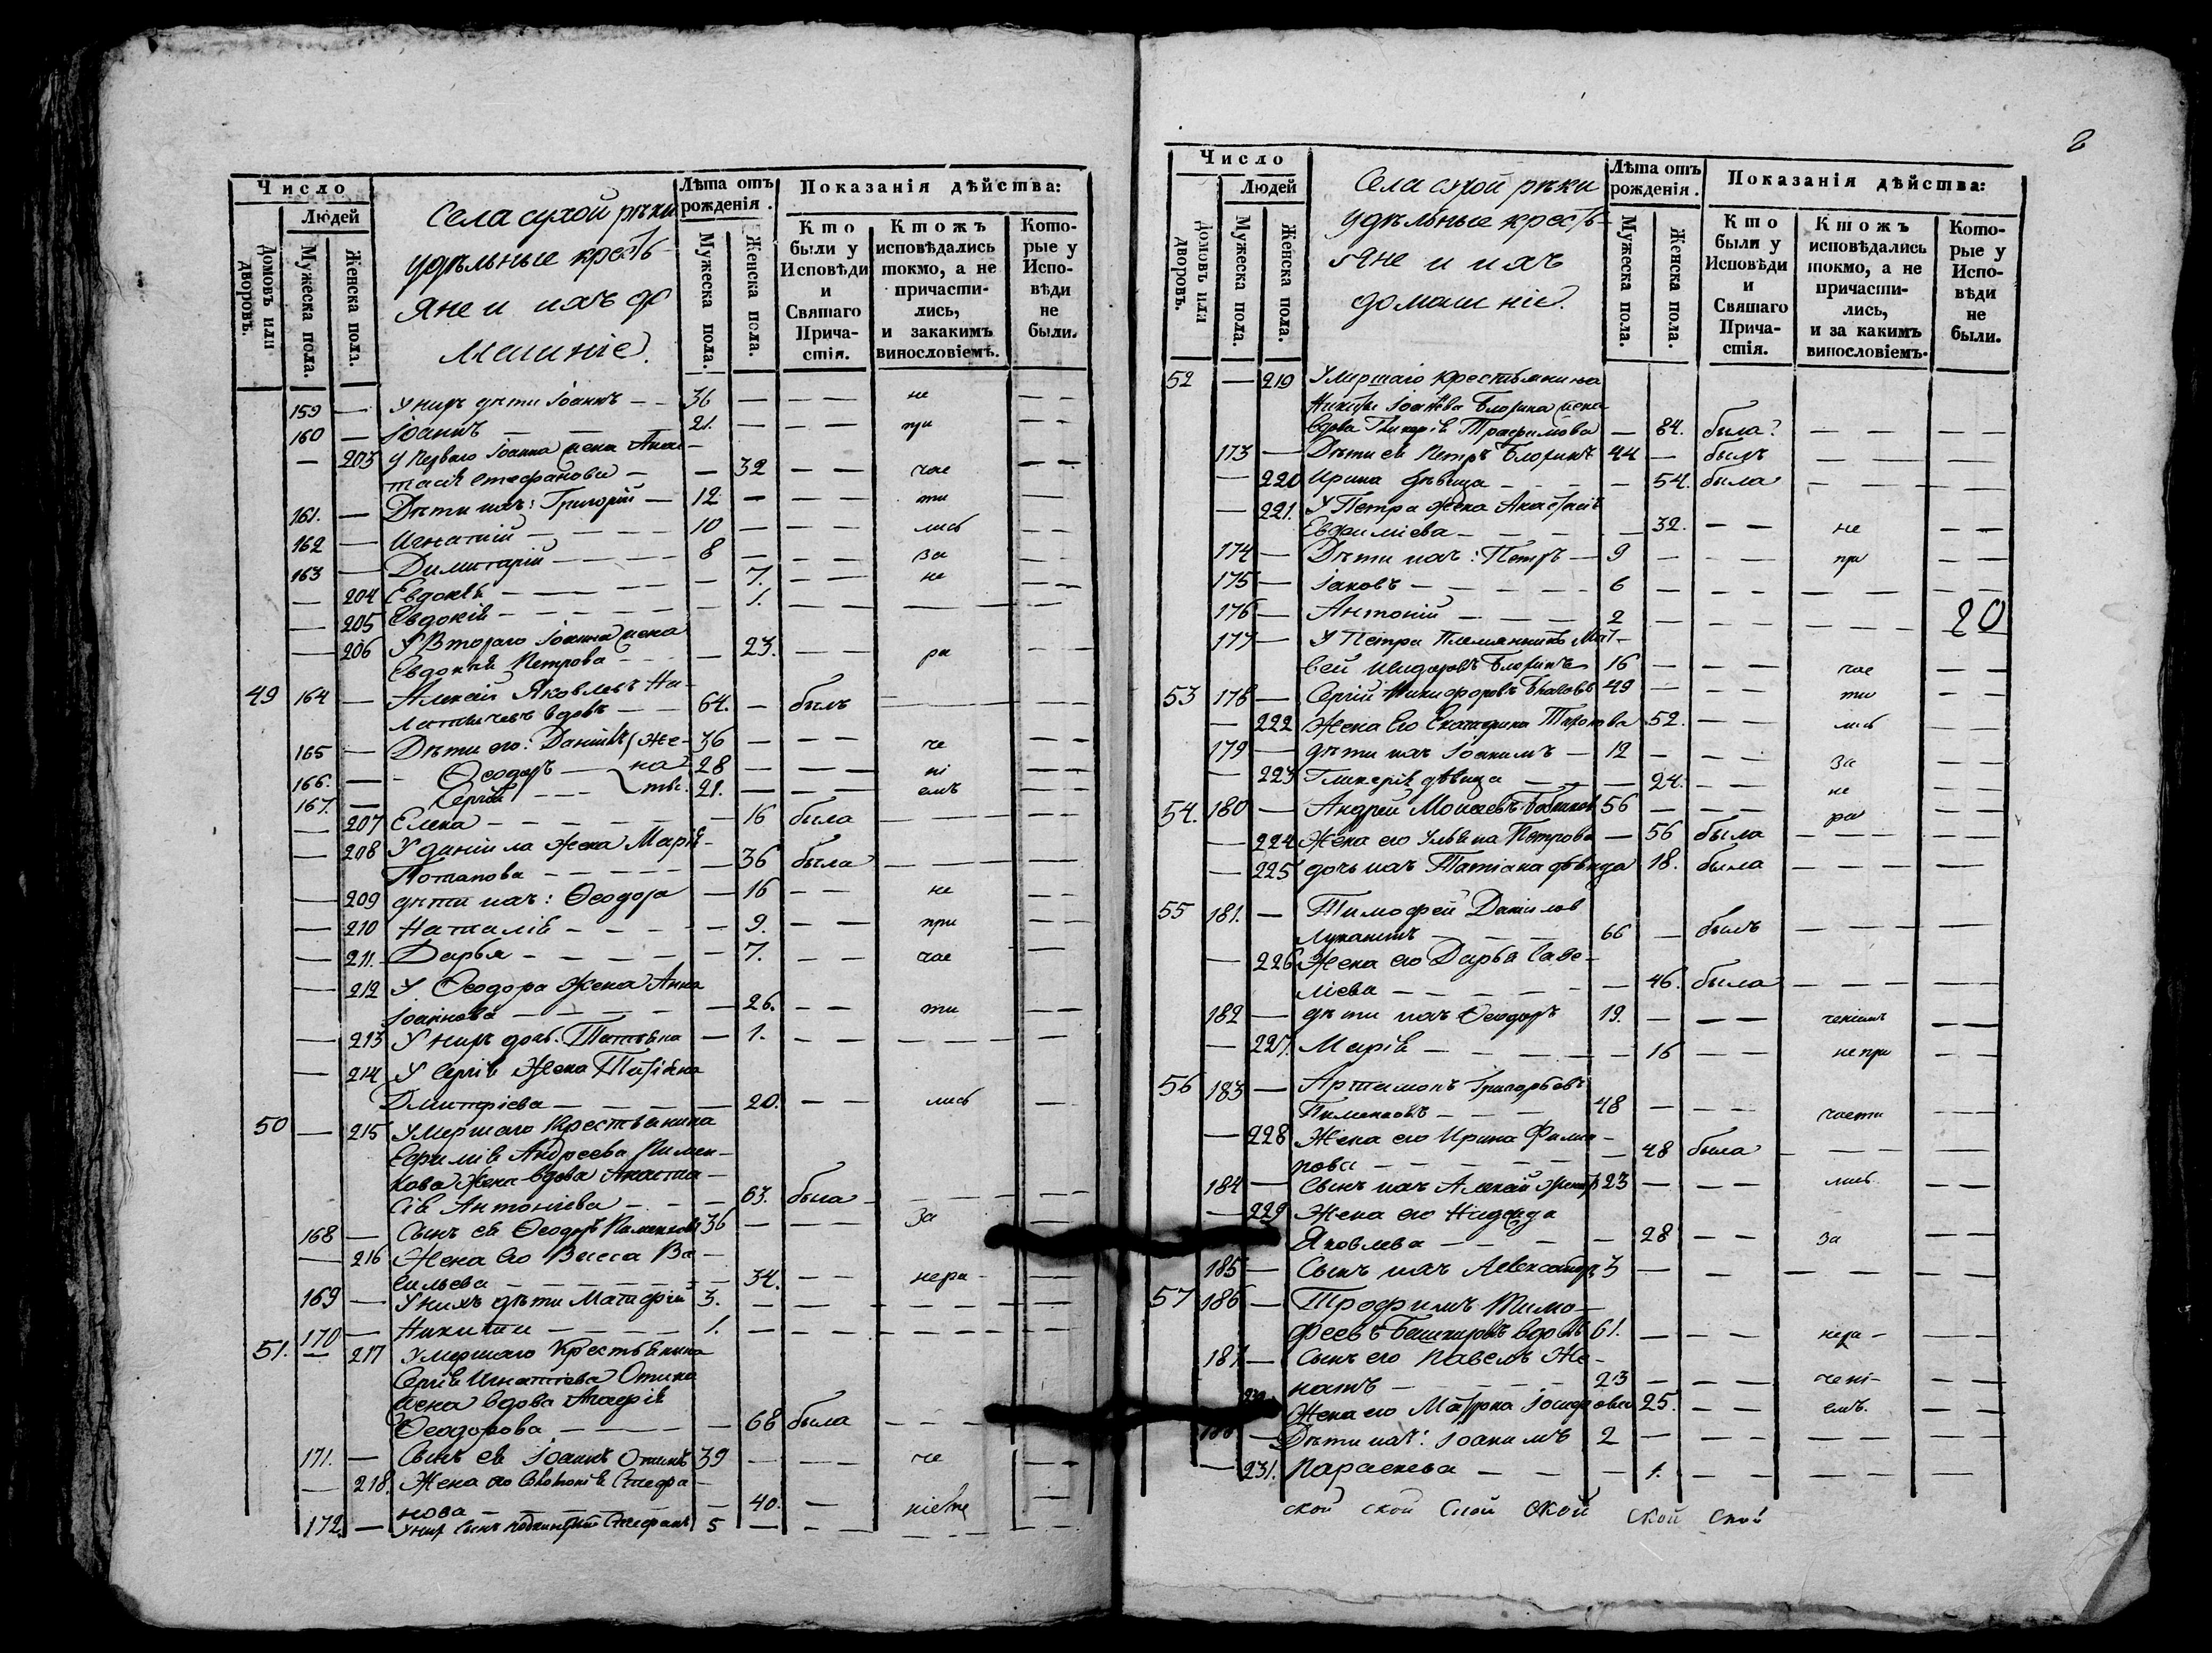 Число
Людей
Домовъ или дворовъ.
Мужеска пола.
Женска пола.
Села сухой рѣки
удѣльные кресть-
яне и ихъ до
машніе.
Лѣта отъ рожденія.
Мужеска пола.
Женска пола.
Показанія дѣйства:
Кто были у Исповѣди и Святаго Прича-стія.
Ктожъ исповѣдались токмо, а не причасти-лись, и закакимъ винословіемъ.
Кото-рые у Испо-вѣди не были.
159 — У нихъ дѣти Іоаннъ — — 36 — — — не — —
160 — Іоаннъ — — 21. — — — при — —
— 203 У перваго Іоанна жена Анас-
тасія Стефанова — — 32 — — чае — —
161. — Дѣти ихъ: Григорій — 12 — — — ти — —
162 — Игнатий — — — — 10 — — — лись — —
163 — Димитрій — — — — 8 — — — за — —
— 204 Евдокія — — — — 7. — — не — —
— 205 Евдокія — — — — 1. — — — — —
— 206 У Втораго Іоанна жена
Евдокія Петрова — — — 23. — — ра — —
49 164 — Алексій Яковлевъ
вдовъ — — 64. — былъ — — —
165 — Дѣти его: Даніилъ (же- 36 — — — че — —
166. — Ѳеодоръ — на- 28 — — — ні — —
167. — Сергій — — ты. 21. — — — емъ — —
— 207 Елена — — — — 16 была — — —
— 208 У Даніила жена Марія
Потапова — — — — 36 была — — —
— 209 дѣти ихъ: Ѳеодора — 16 — — не — —
— 210 Наталія — — — — 9. — — при — —
— 211. Дарья — — — — 7. — — чае —
— 212 У Ѳеодора жена Анна
Іоаннова — — — — 26. — — ти — —
— 213 У нихъ дочь Татьяна — 1. — — — — —
— 214 У Сергія жена Татіана
Дмитріева — — — — 20. — — лись —
50 — 215 Умершаго крестьянина
Евфимія Андреева Пимен-
кова жена вдова Анаста-
сія Антоніева — — — 63. была — — —
168 — Сынъ ея Ѳеодоръ Пименковъ 36 — — — За —
— 216 Жена его Васса Ва-
сильева — — — — 34. — — нера- —
169 — У нихъ дѣти Матфій 3. — — — — — —
170 — Никита — — — — 1. — — — — — —
51. — 217 Умершаго Крестьянина
Сергія Игнатіева
жена вдова Агафія
Ѳеодорова — — — — 68 была — — —
171. — Сынъ ея Іоаннъ 39 — — — че — —
— 218. Жена его Стефа-
нова — — — 40. — ніемъ —
172. — Стефанъ 5 — — — — —
Число
Людей
Домовъ или дворовъ.
Мужеска пола.
Женска пола.
Села сухой рѣки
удѣльные кресть-
яне и ихъ
домашніе.
Лѣта отъ рожденія.
Мужеска пола.
Женска пола.
Показанія дѣйства:
Кто были у Исповѣди и Святаго Прича-стія.
Ктожъ исповѣдались токмо, а не причасти-лись, и за какимъ винословіемъ.
Кото-рые у Испо-вѣди не были.
52 — 219 Умершаго крестьянина
Никиты жена
вдова Гликерія Трофимова — 84. была — — —
173 — Дѣти ея Петръ 44 — былъ — — —
— 220 Ирина дѣвица — — — 54. была — — —
— 221. У Петра жена Анастасія
Евфиміева — — — 32. — — не — —
174 — Дѣти ихъ: Петръ — 9 — — — при — —
175 — Іаковъ — — — — 6 — — — — —
176 — Антоній — — — 2 — — — — 20
177 — У Петра племянникъ Мат-
вей 16 — — — чае — —
53 178 — Сергій Никифоровъ 49 — — — ти — —
— 222 Жена его Екатерина 52. — — лись — —
179 — дѣти ихъ Іоакимъ — 12 — — — за — —
— 223 Гликерія дѣвица — — 24. — — не — —
54. 180 — Андрей Моисеевъ 56 — — — ра — —
— 224 Жена его Ульяна Петрова — 56 была — — —
— 225 дочь ихъ Татіана дѣвица 18. была — — —
55 181. — Тимофей Даниловъ
66 — былъ — — —
— 226 Жена его Дарья Саве-
ліева — — — — 46. была — — —
182 — дѣти ихъ Ѳеодоръ 19. — — — ченіемъ — —
— 227. Марія — — — — 16 — — непри — —
56 183 — Артамонъ Григорьевъ
Пименковъ — — — 48 — — — части — —
— 228 Жена его Ирина Филип-
пова — — — — 48 была — — —
184 — Сынъ ихъ Алексій женатъ 23 — — — лись — —
— 229 Жена его Надежда
Яковлева — — — — 28 — — за — —
185 — Сынъ ихъ Александръ 3 — — — — — —
57 186 — Трофимъ Тимо-
феевъ Башкировъ вдовъ 61. — — — нера- —
187 — Сынъ его Павелъ Же-
натъ — — — — 23 — — — чені- —
Жена его Матрона Іосифова 25. — — емъ. —
— Дѣти ихъ: Іоакимъ 2 — — — — —
— 231. Параскева — — — 1. — — — — —
ской ской ской ской ской ской